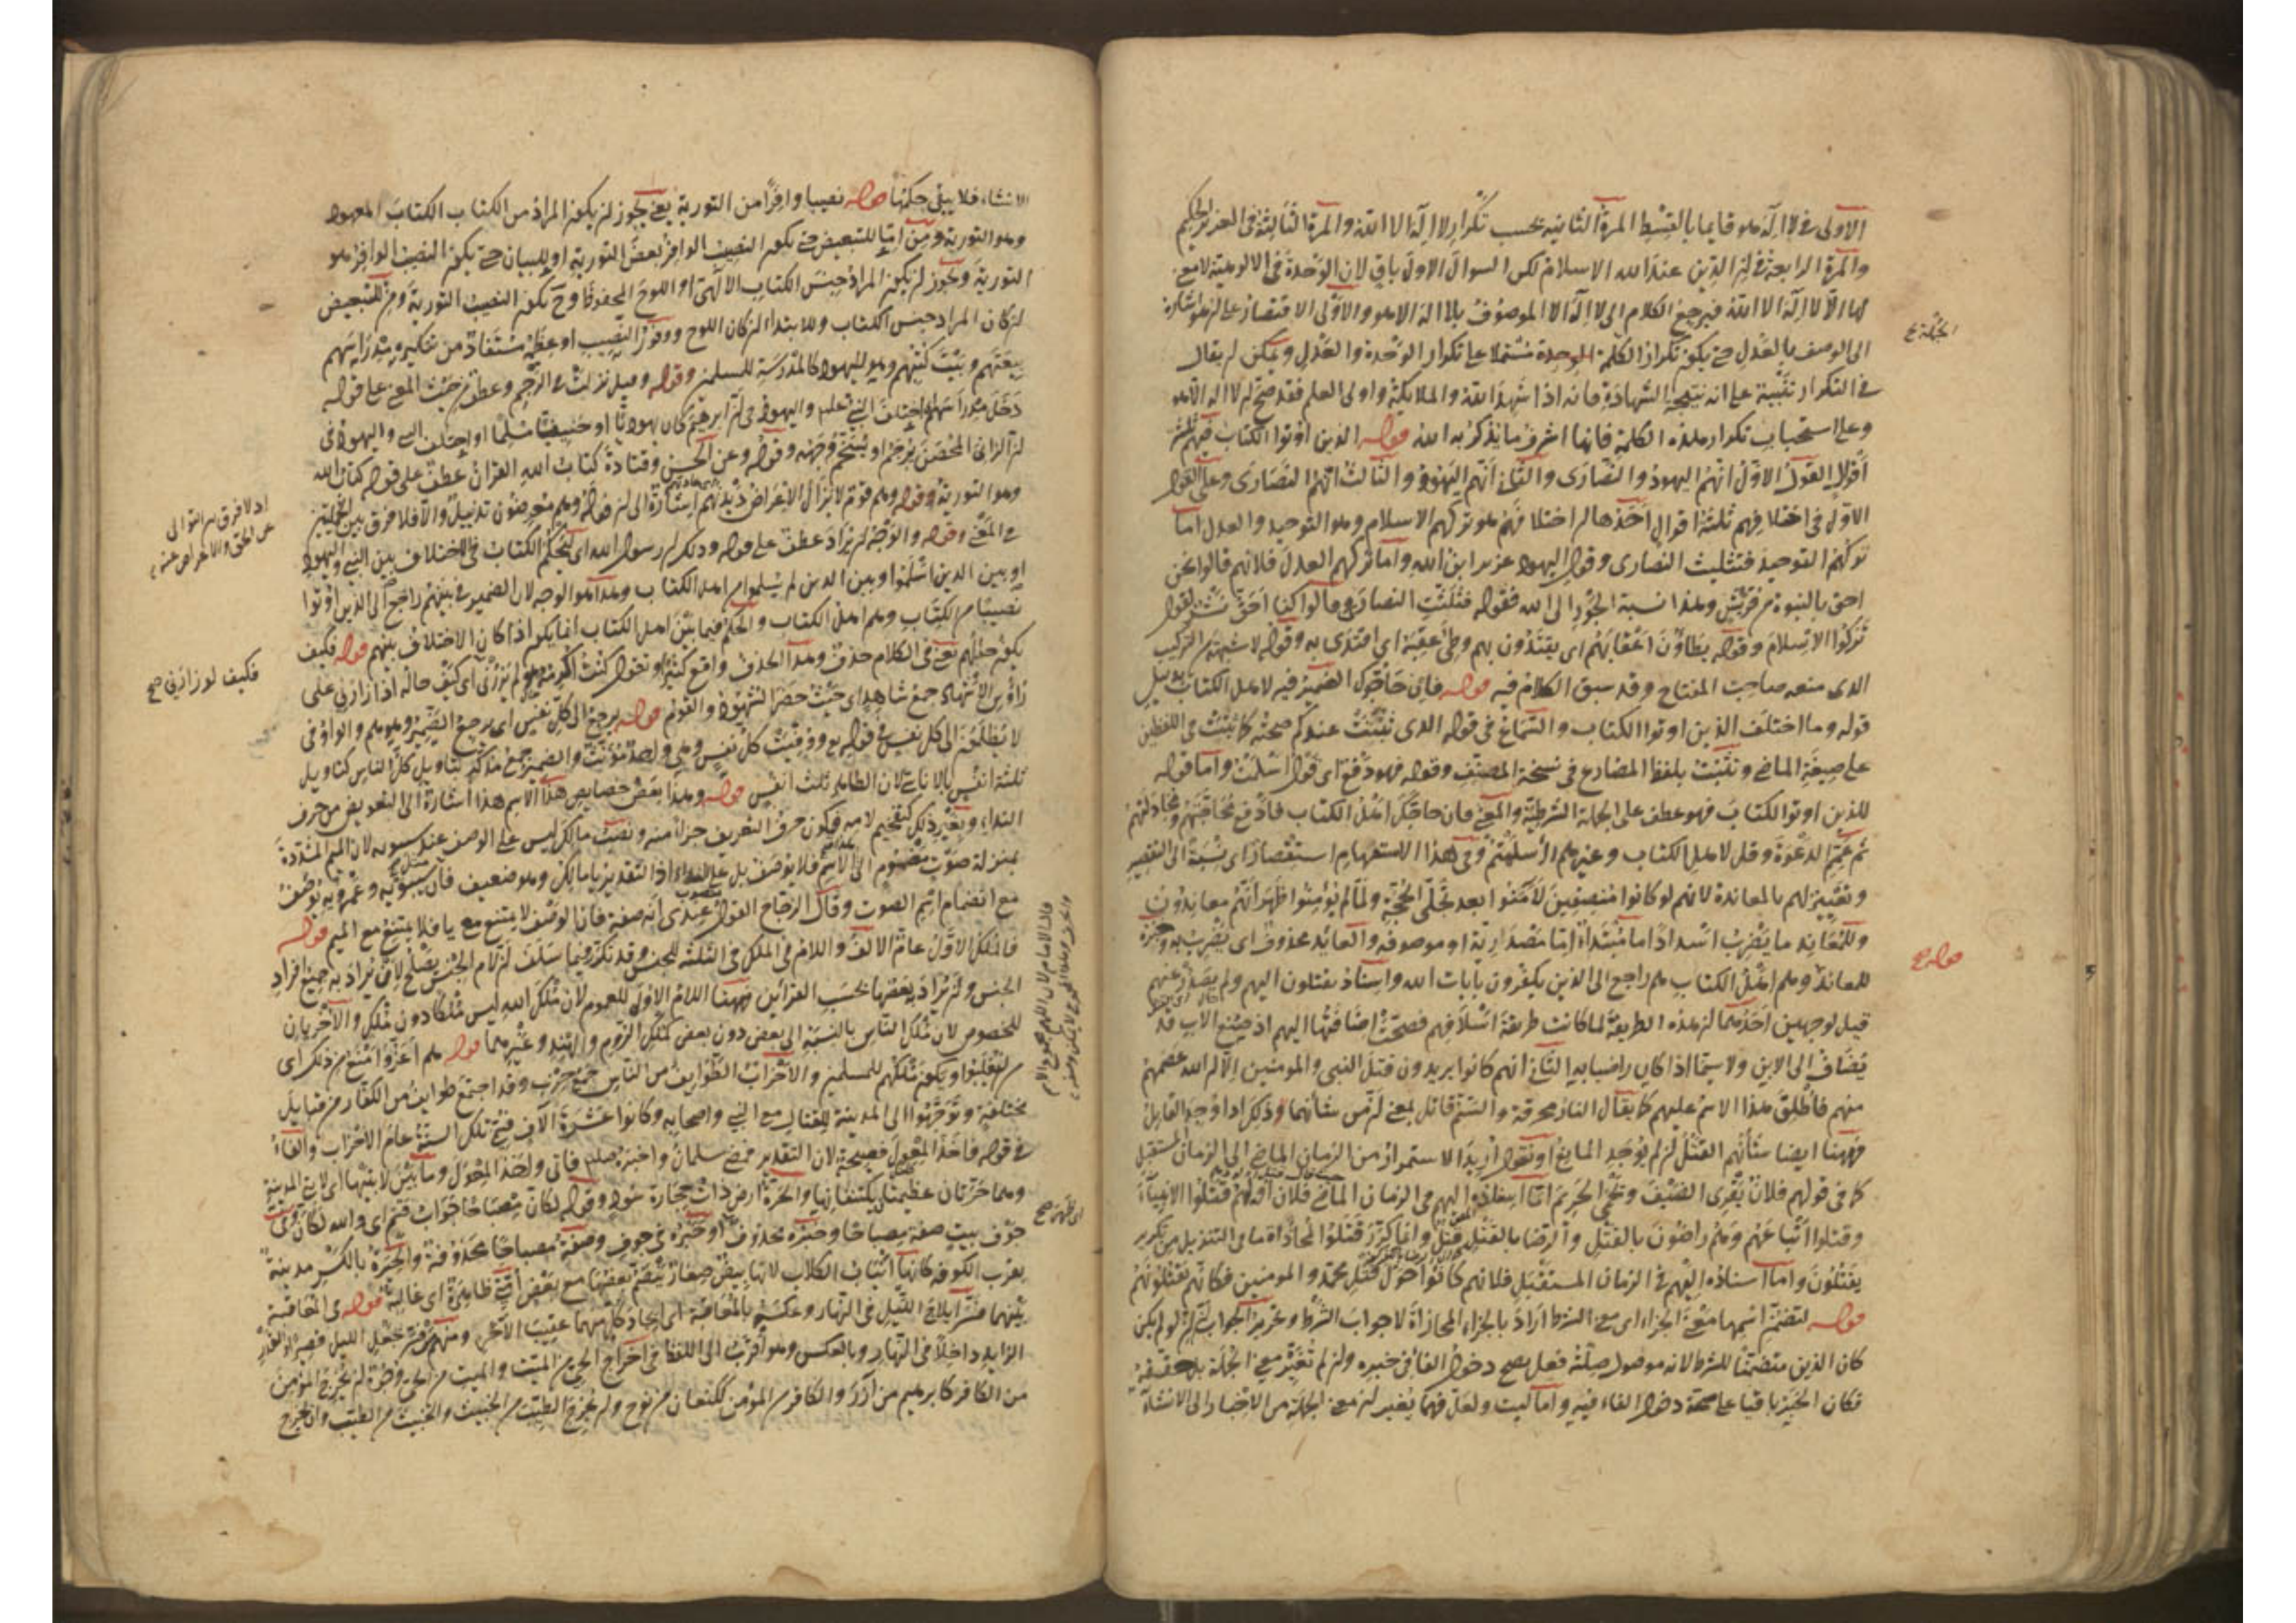 الاولى في لا اله هو قايما بالقسط المرة الثانية بحسب تكرار لا اله الا الله والمرة الثالثة في العزيز الحكيم
والمرة الرابعة في ان الدين عند الله الاسلام لكن السوال الاول باق لان الوحدة في الالوهية لا مع
لها الا لا اله الا الله فيرجع الكلام الى لا اله الا الموصوف بلا اله الا هو والاولى الاقتصار على
الجملة ع
الى الوصف بالعدل حتى يكون تكرار الكلمة الموحدة مشتملا على تكرار الوحدة والعدل ويمكن ان يقال
في التكرار تنبيه على انه نتيجة الشهادة فانه اذا شهد الله والملايكة واولى العلم فقد صح ان لا اله الا هو
وعلى استحباب تكرار هذه الكلمة فانها اشرف ما يذكر به الله قوله الذين اوتوا الكتاب فيهم ثلثة
اقوال القول الاول انهم اليهود والنصارى والثاني انهم اليهود والثالث انهم النصارى وعلى القول
الاول في اختلافهم ثلثة اقوال احدها ان اختلافهم هو تركهم الاسلام وهو التوحيد والعدل اما
تركهم التوحيد فتثليث النصارى وقول اليهود عزير ابن الله واما تركهم العدل فلانهم قالوا نحن
احق بالنبوة من قريش وهذا نسبة الجور الى الله فقوله فثلثت النصارى وقالوا كنا احق
تركوا الاسلام وقوله يطاؤن اعقابهم اى يقتدون بهم وطئ عقبه اى اقتدى به وقوله لا شبهة التركيب
الذى منعه صاحب المفتاح وقد سبق الكلام فيه قوله فان حاجوك الضمير فيه لاهل الكتاب بدليل
قوله وما اختلف الذين اوتوا الكتاب والسماع في قوله الذى ثبتت عندكم صحته كما ثبتت في اللفظين
على صيغة الماضي وتثبت بلفظ المضارع في نسخة المصنف وقوله فهو دفع اى قول اسلمت واما قوله
للذين اوتوا الكتاب فهو عطف على الجملة الشرطية والمعنى فان حاجك اهل الكتاب فادفع محاجتهم ومجادلتهم
ثم عمم الدعوة وقل لاهل الكتاب وغيرهم ااسلمتم وفي هذا الاستفهام استقصار اى نسبة الى التقصير
وتعيير لهم بالمعاندة لانهم لو كانوا منصفين لآمنوا بعد تجلى الحجة ولما لم يؤمنوا ظهر انهم معاندون
وللمعاند ما يضرب اسدادا ما مبتداة اما مصدارية او موصوفة والعايد محذوف اى يضرب به وخبره
للمعاند وهم اهل الكتاب هم راجع الى الذين يكفرون بآيات الله واسناد يقتلون اليهم ولم يصدر عنهم
قوله ع
قيل لوجهين احدهما ان هذه الطريقة لما كانت طريقة اسلافهم فصحت اضافتها اليهم اذ صنع الاب قد
يضاف الى الابن ولا سيما اذا كان راضيا به الثاني انهم كانوا يريدون قتل النبي والمومنين الا ان الله عصمهم
منهم فاطلق هذا الاسم عليهم كما يقال النار محرقة والسم قاتل بمعنى ان من شانهما وذلك اذا وجد القابل
فههنا ايضا شأنهم القتل ان لم يوجد المانع او نقول اريد الاستمرار من الزمان الماضي الى الزمان المستقبل
كما في قولهم فلان يقرى الضيف ويحمى الحريم اما اسناده اليهم في الزمان الماضي فلان قتلوا الانبياء
وقتلوا اتباعهم وهم راضون بالقتل والرضا بالقتل قتل وانما كرر قتلوا لمحاذاة ما في التنزيل من تكرير
يقتلون واما اسناده اليهم في الزمان المستقبل فلانهم كانوا حول قتل محمد والمومنين فكانهم يقتلونهم
قوله لتضمن اسمها معنى الجزاء اى معنى الشرط اراد بالجزاء المجازاة لا جواب الشرط وتحرير الجواب ان لو لم يكن
كان الذين متضمنا للشرط لانه موصول صلته فعل يصح دخول الفاء في خبره وان لم تغير معنى الجملة بل
فكان الخبر باقيا على صحة دخول الفاء فيه واما ليت ولعل فهما يغير ان معنى الجملة من الاخبار الى الانشاء
الانشاء فلا يبقى حكمها قوله نصيبا وافرا من التورية يعنى يجوز ان يكون المراد من الكتاب الكتاب المعهود
وهو التورية ومن اما للتبعيض حتى يكون النصيب الوافر بعض التورية او للبيان حتى يكون النصيب الوافر هو
التورية ويجوز ان يكون المراد جنس الكتاب الالهى او اللوح المحفوظ وح يكون النصيب التورية ومن للتبعيض
ان كان المراد جنس الكتاب وللابتداء ان كان اللوح ووفور النصيب او عظمه مستفاد من تنكيره مدراسهم
بيعتهم وبيت كتبهم وهو لليهود كالمدرسة للمسلمين وقوله وقيل نزلت في الرجم وعطف من حيث المعنى على قوله
دخل مدراسهم اختلف النبي صلعم واليهود في ان ابرهيم كان يهوديا او حنيفا مسلما او اختلف النبي واليهود في
ان الزاني المحصن يرجم او يسخم وجهه وقوله وعن الحسن وقتادة كتاب الله القران عطف على قوله كتاب الله
وهو التورية وقوله وهم قوم لا يزال الاعراض ديدنهم اشارة الى ان قوله وهم معرضون تذييل والا فلا فرق بين
اذ لا فرق بين التولى
عن الحق والاعراض عنه
في المعنى وقوله والوجه ان يراد عطف على قوله وذلك ان رسول الله اى ليحكم الكتاب في الاختلاف بين النبي واليهود
او بين الذين اسلموا وبين الذين لم يسلموا من اهل الكتاب وهذا هو الوجه لان الضمير في بينهم راجع الى الذين اوتوا
نصيبا من الكتاب وهم اهل الكتاب والحكم فيما بين اهل الكتاب انما يكون اذا كان الاختلاف بينهم قوله فكيف
يكون حالهم يعنى في الكلام حذف وهذا الحذف واقع كثيرا تقول كنت اكرمه وهو لم يزرنى اى كيف حاله اذا زارني على
فكيف لو زارني صح
رؤس الاشهاد جمع شاهد اى حيث حضر الشهود والقوم قوله يرجع الى كل نفس اى يرجع الضمير وهو هم والواو في
لا يظلمون الى كل نفس في قوله تع ووفيت كل نفس وهي واحد مؤنث والضمير جمع مذكر بتاويل كل الناس كتاويل
ثلثة انفس بالاناسي لان الظاهر ثلث انفس قوله وهذا بعض خصايص هذا الاسم هذا اشارة الى التعويض من حرف
النداء وبغير ذلك كتفخيم لامه وكون حرف التعريف جزأ منه ونصب مالك ليس على الوصف عند سيبويه لان الميم المشددة
بمنزلة صوت مضموم الى الاسم فلا يوصف بل على النداء اذ التقدير يا مالك وهو ضعيف فان سيبويه وعمرويه توصف
مع انضمام اسم الصوت وقال الزجاج القول عندى انه صفة فانه لو صف لا يمتنع مع يا فلا يمتنع مع الميم قوله
فالملك الاول عام الالف واللام في الملك في الثلثة للجنس وقد تكرر فيما سلف ان لام الجنس يصلح لان يراد به جميع افراد
الجنس وان يراد بعضها بحسب القراين فههنا اللام الاول للعموم لان ملك الله ليس ملكا دون ملك والآخريان
للخصوص لان ملك الناس بالنسبة الى بعض دون بعض كملك الروم والهند وغيرهما قوله هم اعز وامنع من ذلك اى
من ان يغلبوا ويكون ملكهم للمسلمين والاحزاب الطوايف من الناس جمع حزب وقد اجتمع طوايف من الكفار من قبايل
مختلفة وتوجهوا الى المدينة للقتال مع النبي واصحابه وكانوا عشرة آلاف فتح تلك السنة عام الاحزاب والفاء
في قوله فاخذ المعول فصيحة لان التقدير فمضى سلمان واخبره صلعم فاتى واخذ المعول وما بين لابتيها اى لابتي المدينة
وهما حرتان عظيمتان يكتنفانها والحرة ارض ذات حجارة سود وقوله لكان مصباحا جواب قسم اى والله لكان وفي
اى ظهر صح
جوف بيت صفة مصباحا وخبره محذوف او خبره في جوف وصفة مصباحا محذوفة والحيرة بالكسر مدينة
بقرب الكوفة كانها انياب الكلاب لانها بيض صغار منضم بعضها مع بعض امتى ظاهرة اى غالبة قوله في المعاقبة
بينهما فسر ايلاج الليل في النهار وعكسه بالمعاقبة اى ايجاد كل منهما عقيب الآخر ومنهم من فسر بجعل الليل قصيرا
الزايد داخلا في النهار وبالعكس وهو اقرب الى اللفظ في اخراج الحي من الميت والميت من الحي وجوه ان يخرج المؤمن
من الكافر كابرهيم من آزر والكافر من المؤمن ككنعان من نوح وان يخرج الطيب من الخبيث والخبيث من الطيب وان يخرج